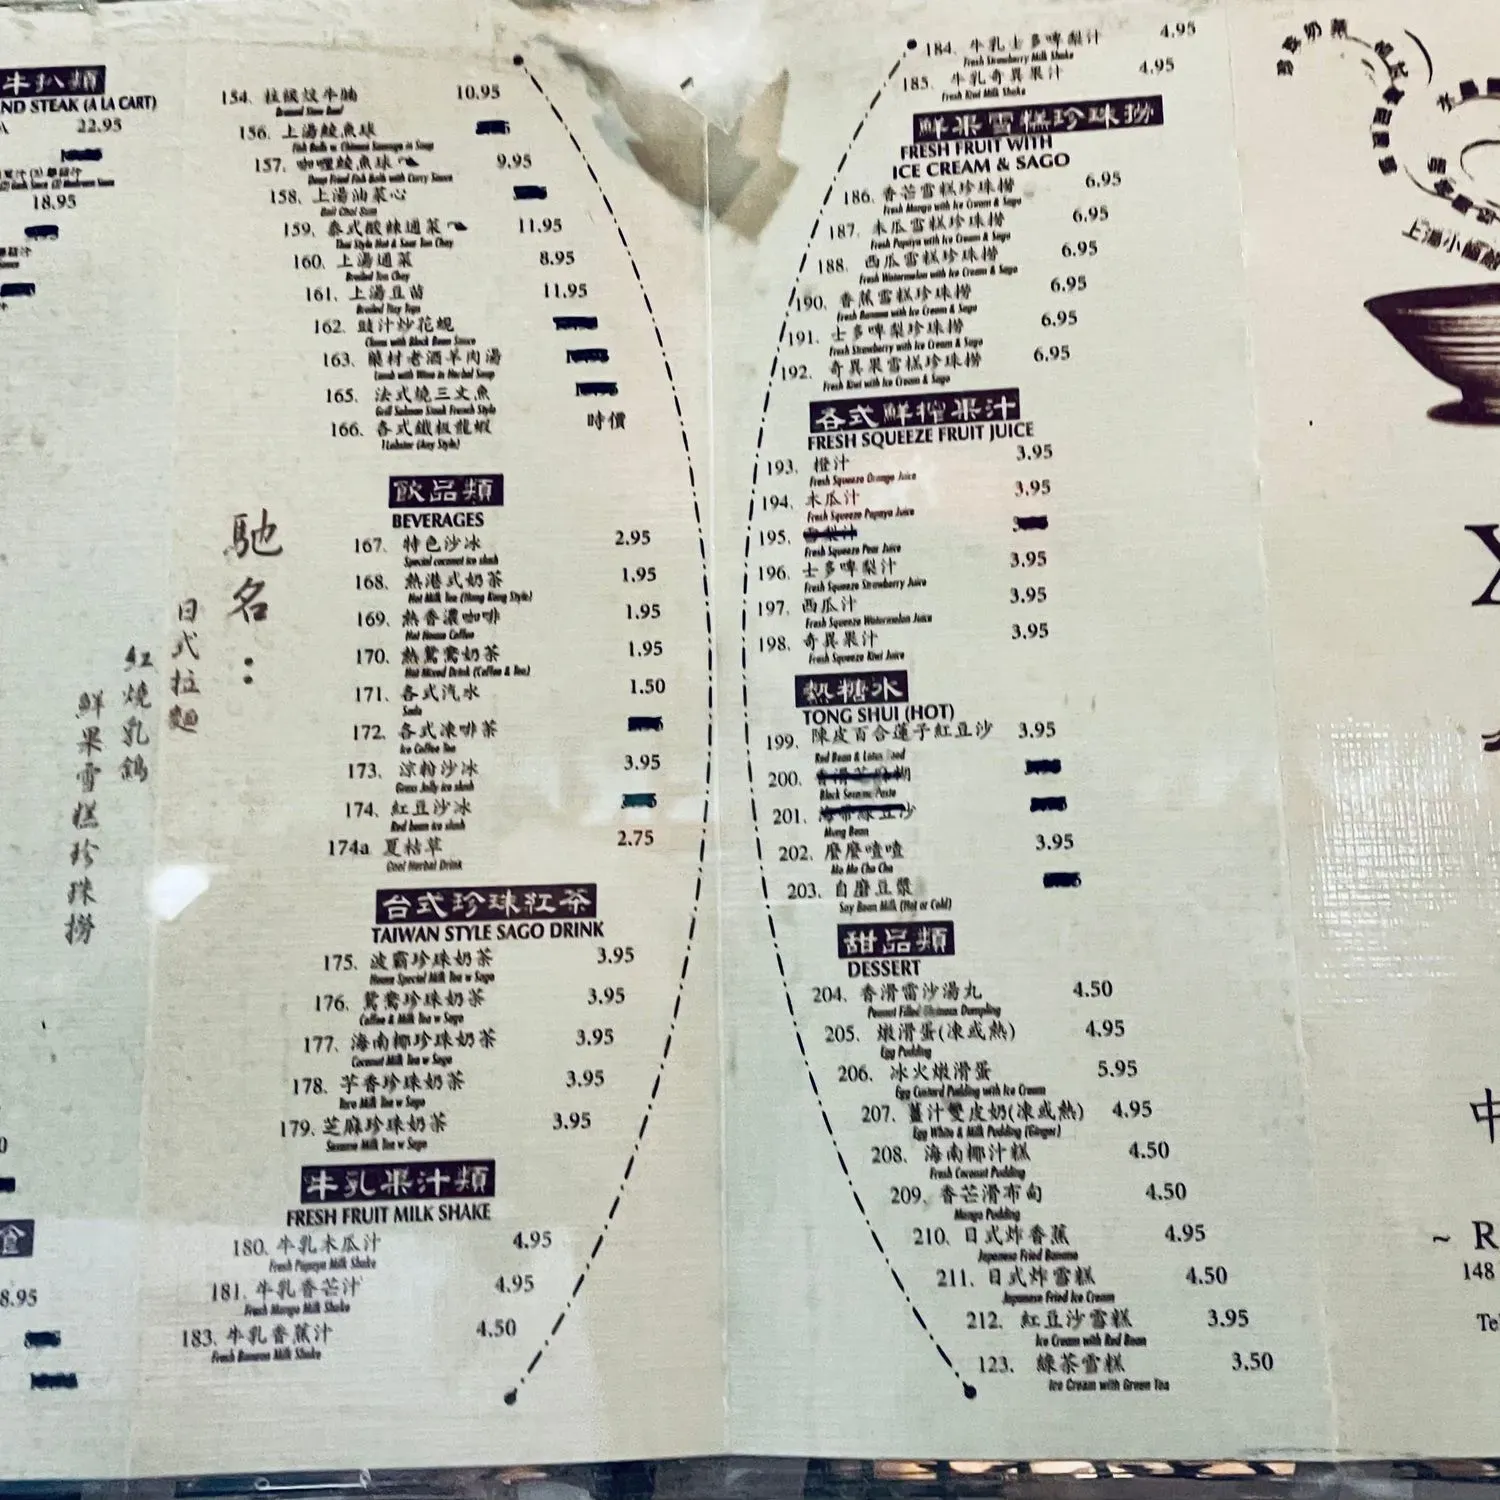 牛扒類
ND STEAK (A LA CART)
22.95
18.95
8.95
154. 10.95
Braised Stew Beef
156. 上湯鯪魚球
Fish Balls w. Chinese Sausage in Soup
157. 咖哩鯪魚球 9.95
Deep Fried Fish Balls with Curry Sauce
158. 上湯油菜心
Boil Choi Sum
159. 泰式酸辣通菜 11.95
Thai Style Hot & Sour Ton Choy
160. 上湯通菜 8.95
Broiled Ton Choy
161. 上湯豆苗 11.95
Broiled Tops
162. 豉汁炒花蜆
Clams with Black Bean Sauce
163. 藥材老酒羊肉湯
Lamb with Wine in Herbal Soup
165. 法式燒三文魚
Grill Salmon Steak French Style
166. 各式鐵板龍蝦 時價
Lobster (Any Style)
馳名:
日式拉麵
紅燒乳鴿
鮮果雪糕珍珠撈
飲品類
BEVERAGES
167. 特色沙冰 2.95
Special coconut ice slush
168. 熱港式奶茶 1.95
Hot Milk Tea (Hong Kong Style)
169. 熱香濃咖啡 1.95
Hot House Coffee
170. 熱鴛鴦奶茶 1.95
Hot Mixed Drink (Coffee & Tea)
171. 各式汽水 1.50
Soda
172. 各式凍啡茶
Ice Coffee Tea
173. 涼粉沙冰 3.95
Grass Jelly ice slush
174. 紅豆沙冰
Red bean ice slush
174a 夏枯草 2.75
Cool Herbal Drink
台式珍珠紅茶
TAIWAN STYLE SAGO DRINK
175. 波霸珍珠奶茶 3.95
House Special Milk Tea w Sago
176. 鴛鴦珍珠奶茶 3.95
Coffee & Milk Tea w Sago
177. 海南椰珍珠奶茶 3.95
Coconut Milk Tea w Sago
178. 芋香珍珠奶茶 3.95
Taro Milk Tea w Sago
179. 芝麻珍珠奶茶 3.95
Sesame Milk Tea w Sago
牛乳果汁類
FRESH FRUIT MILK SHAKE
180. 牛乳木瓜汁 4.95
Fresh Papaya Milk Shake
181. 牛乳香芒汁 4.95
Fresh Mango Milk Shake
183. 牛乳香蕉汁 4.50
Fresh Banana Milk Shake
184. 牛乳士多啤梨汁 4.95
Fresh Strawberry Milk Shake
185. 牛乳奇異果汁 4.95
Fresh Kiwi Milk Shake
鮮果雪糕珍珠撈
FRESH FRUIT WITH
ICE CREAM & SAGO
186. 香芒雪糕珍珠撈 6.95
Fresh Mango with Ice Cream & Sago
187. 木瓜雪糕珍珠撈 6.95
Fresh Papaya with Ice Cream & Sago
188. 西瓜雪糕珍珠撈 6.95
Fresh Watermelon with Ice Cream & Sago
190. 香蕉雪糕珍珠撈 6.95
Fresh Banana with Ice Cream & Sago
191. 士多啤梨珍珠撈 6.95
Fresh Strawberry with Ice Cream & Sago
192. 奇異果雪糕珍珠撈 6.95
Fresh Kiwi with Ice Cream & Sago
各式鮮搾果汁
FRESH SQUEEZE FRUIT JUICE
193. 橙汁 3.95
Fresh Squeeze Orange Juice
194. 木瓜汁 3.95
Fresh Squeeze Papaya Juice
195. 雪梨汁
Fresh Squeeze Pear Juice
196. 士多啤梨汁 3.95
Fresh Squeeze Strawberry Juice
197. 西瓜汁 3.95
Fresh Squeeze Watermelon Juice
198. 奇異果汁 3.95
Fresh Squeeze Kiwi Juice
熱糖水
TONG SHUI (HOT)
199. 陳皮百合蓮子紅豆沙 3.95
Red Bean & Lotus Seed
200. 香滑芝麻糊
Black Sesame Paste
201. 海帶綠豆沙
Mung Bean
202. 麼麼喳喳 3.95
Mo Mo Cha Cha
203. 自磨豆漿
Soy Bean Milk (Hot or Cold)
甜品類
DESSERT
204. 香滑雷沙湯丸 4.50
Peanut Filled Chinese Dumpling
205. 燉滑蛋(凍或熱) 4.95
Egg Pudding
206. 冰火燉滑蛋 5.95
Egg Custard Pudding with Ice Cream
207. 薑汁雙皮奶(凍或熱) 4.95
Egg White & Milk Pudding (Ginger)
208. 海南椰汁糕 4.50
Fresh Coconut Pudding
209. 香芒滑布甸 4.50
Mango Pudding
210. 日式炸香蕉 4.95
Japanese Fried Banana
211. 日式炸雪糕 4.50
Japanese Fried Ice Cream
212. 紅豆沙雪糕 3.95
Ice Cream with Red Bean
123. 綠茶雪糕 3.50
Ice Cream with Green Tea
上湯小
中
~ R
148
Te